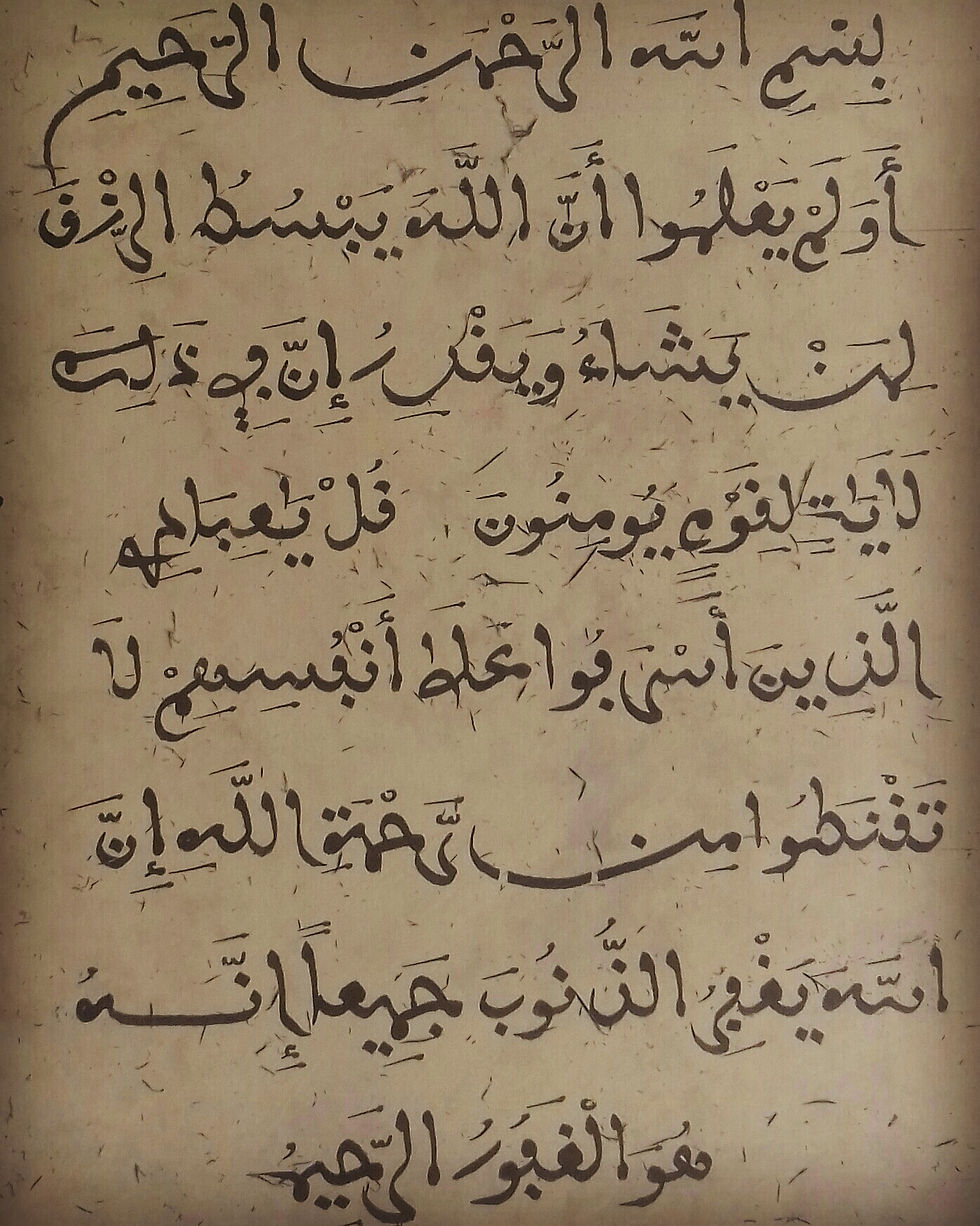 بِسْمِ اللَّهِ الرَّحْمَنِ الرَّحِيمِ
أَوَلَمْ يَعْلَمُوا أَنَّ اللَّهَ يَبْسُطُ الرِّزْقَ
لِمَنْ يَشَاءُ وَيَقْدِرُ إِنَّ فِي ذَلِكَ
لَايَاتٍ لِقَوْمٍ يُومِنُونَ قُلْ يَعِبَادِي
الَّذِينَ أَسْرَفُوا عَلَى أَنْفُسِهِمْ لَا
تَقْنَطُوا مِن رَّحْمَةِ اللَّهِ إِنَّ
اللَّهَ يَغْفِرُ الذُّنُوبَ جَمِيعاً إِنَّهُ
هُوَ الْغَفُورُ الرَّحِيمُ